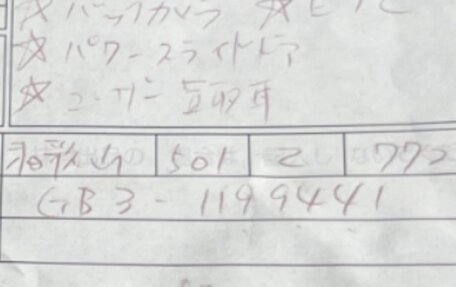 ☆バックカメラ ☆
☆パワースライドドア
☆ユーザー買取車
和歌山 501 772
GB3-1199441